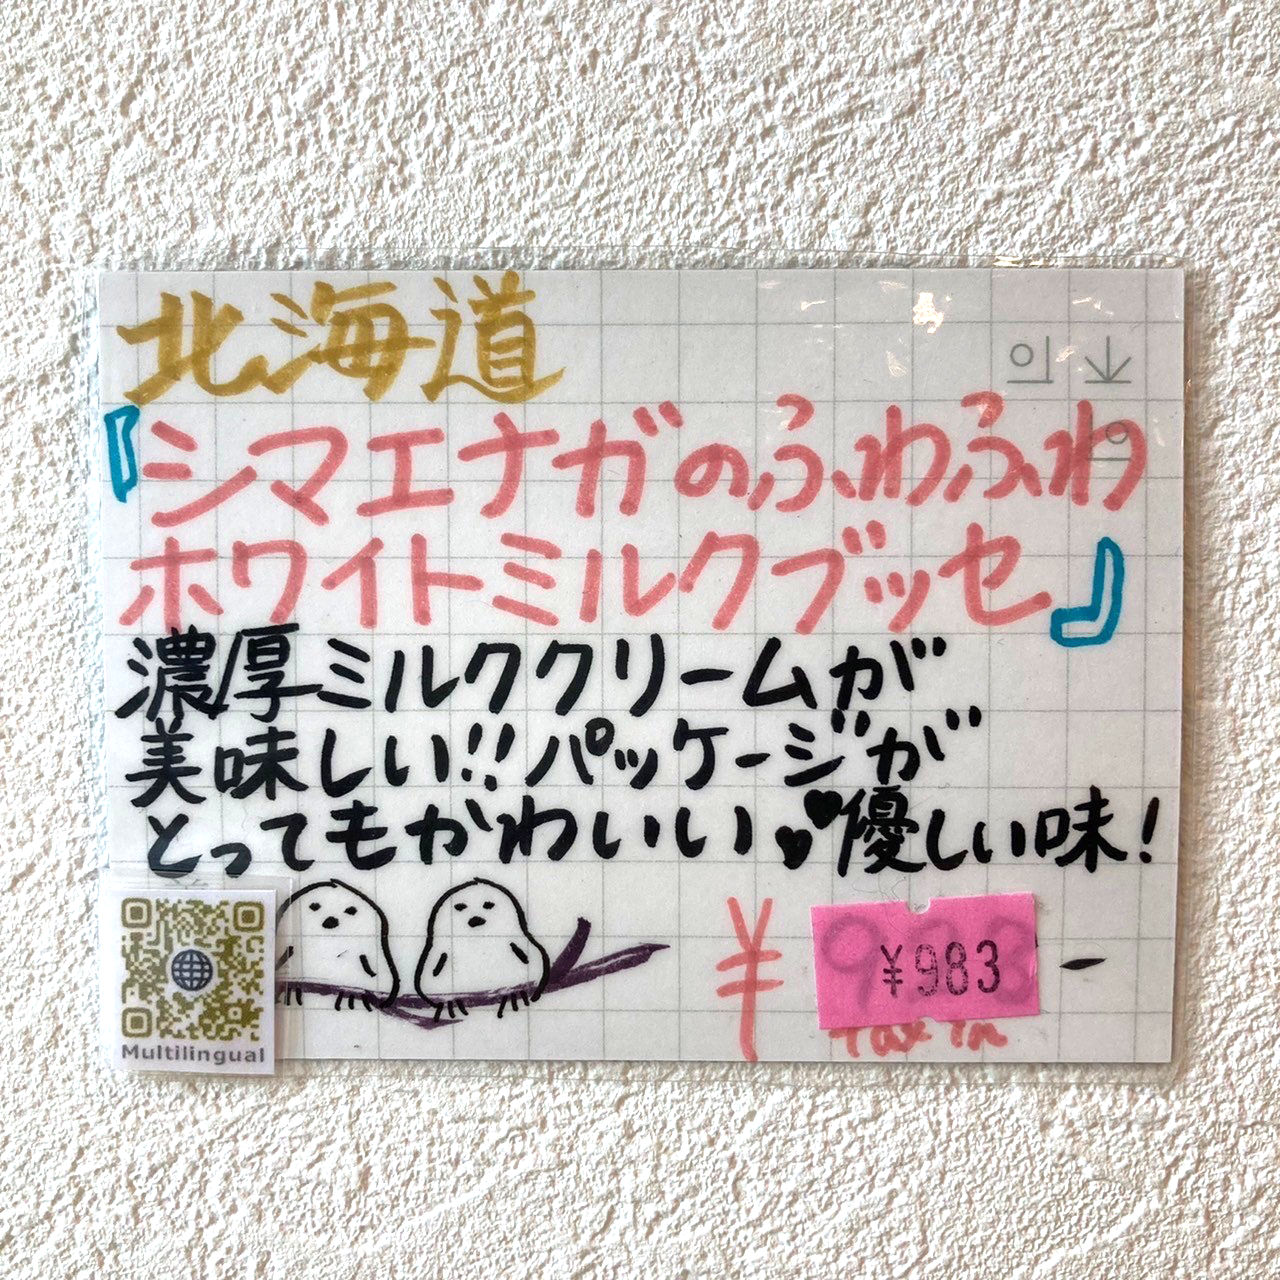 北海道
『シマエナガのふわふわ
ホワイトミルクブッセ』
濃厚ミルククリームが
美味しい!!パッケージが
とってもかわいい♥♥優しい味!
¥ ¥983 -
tax in
Multilingual